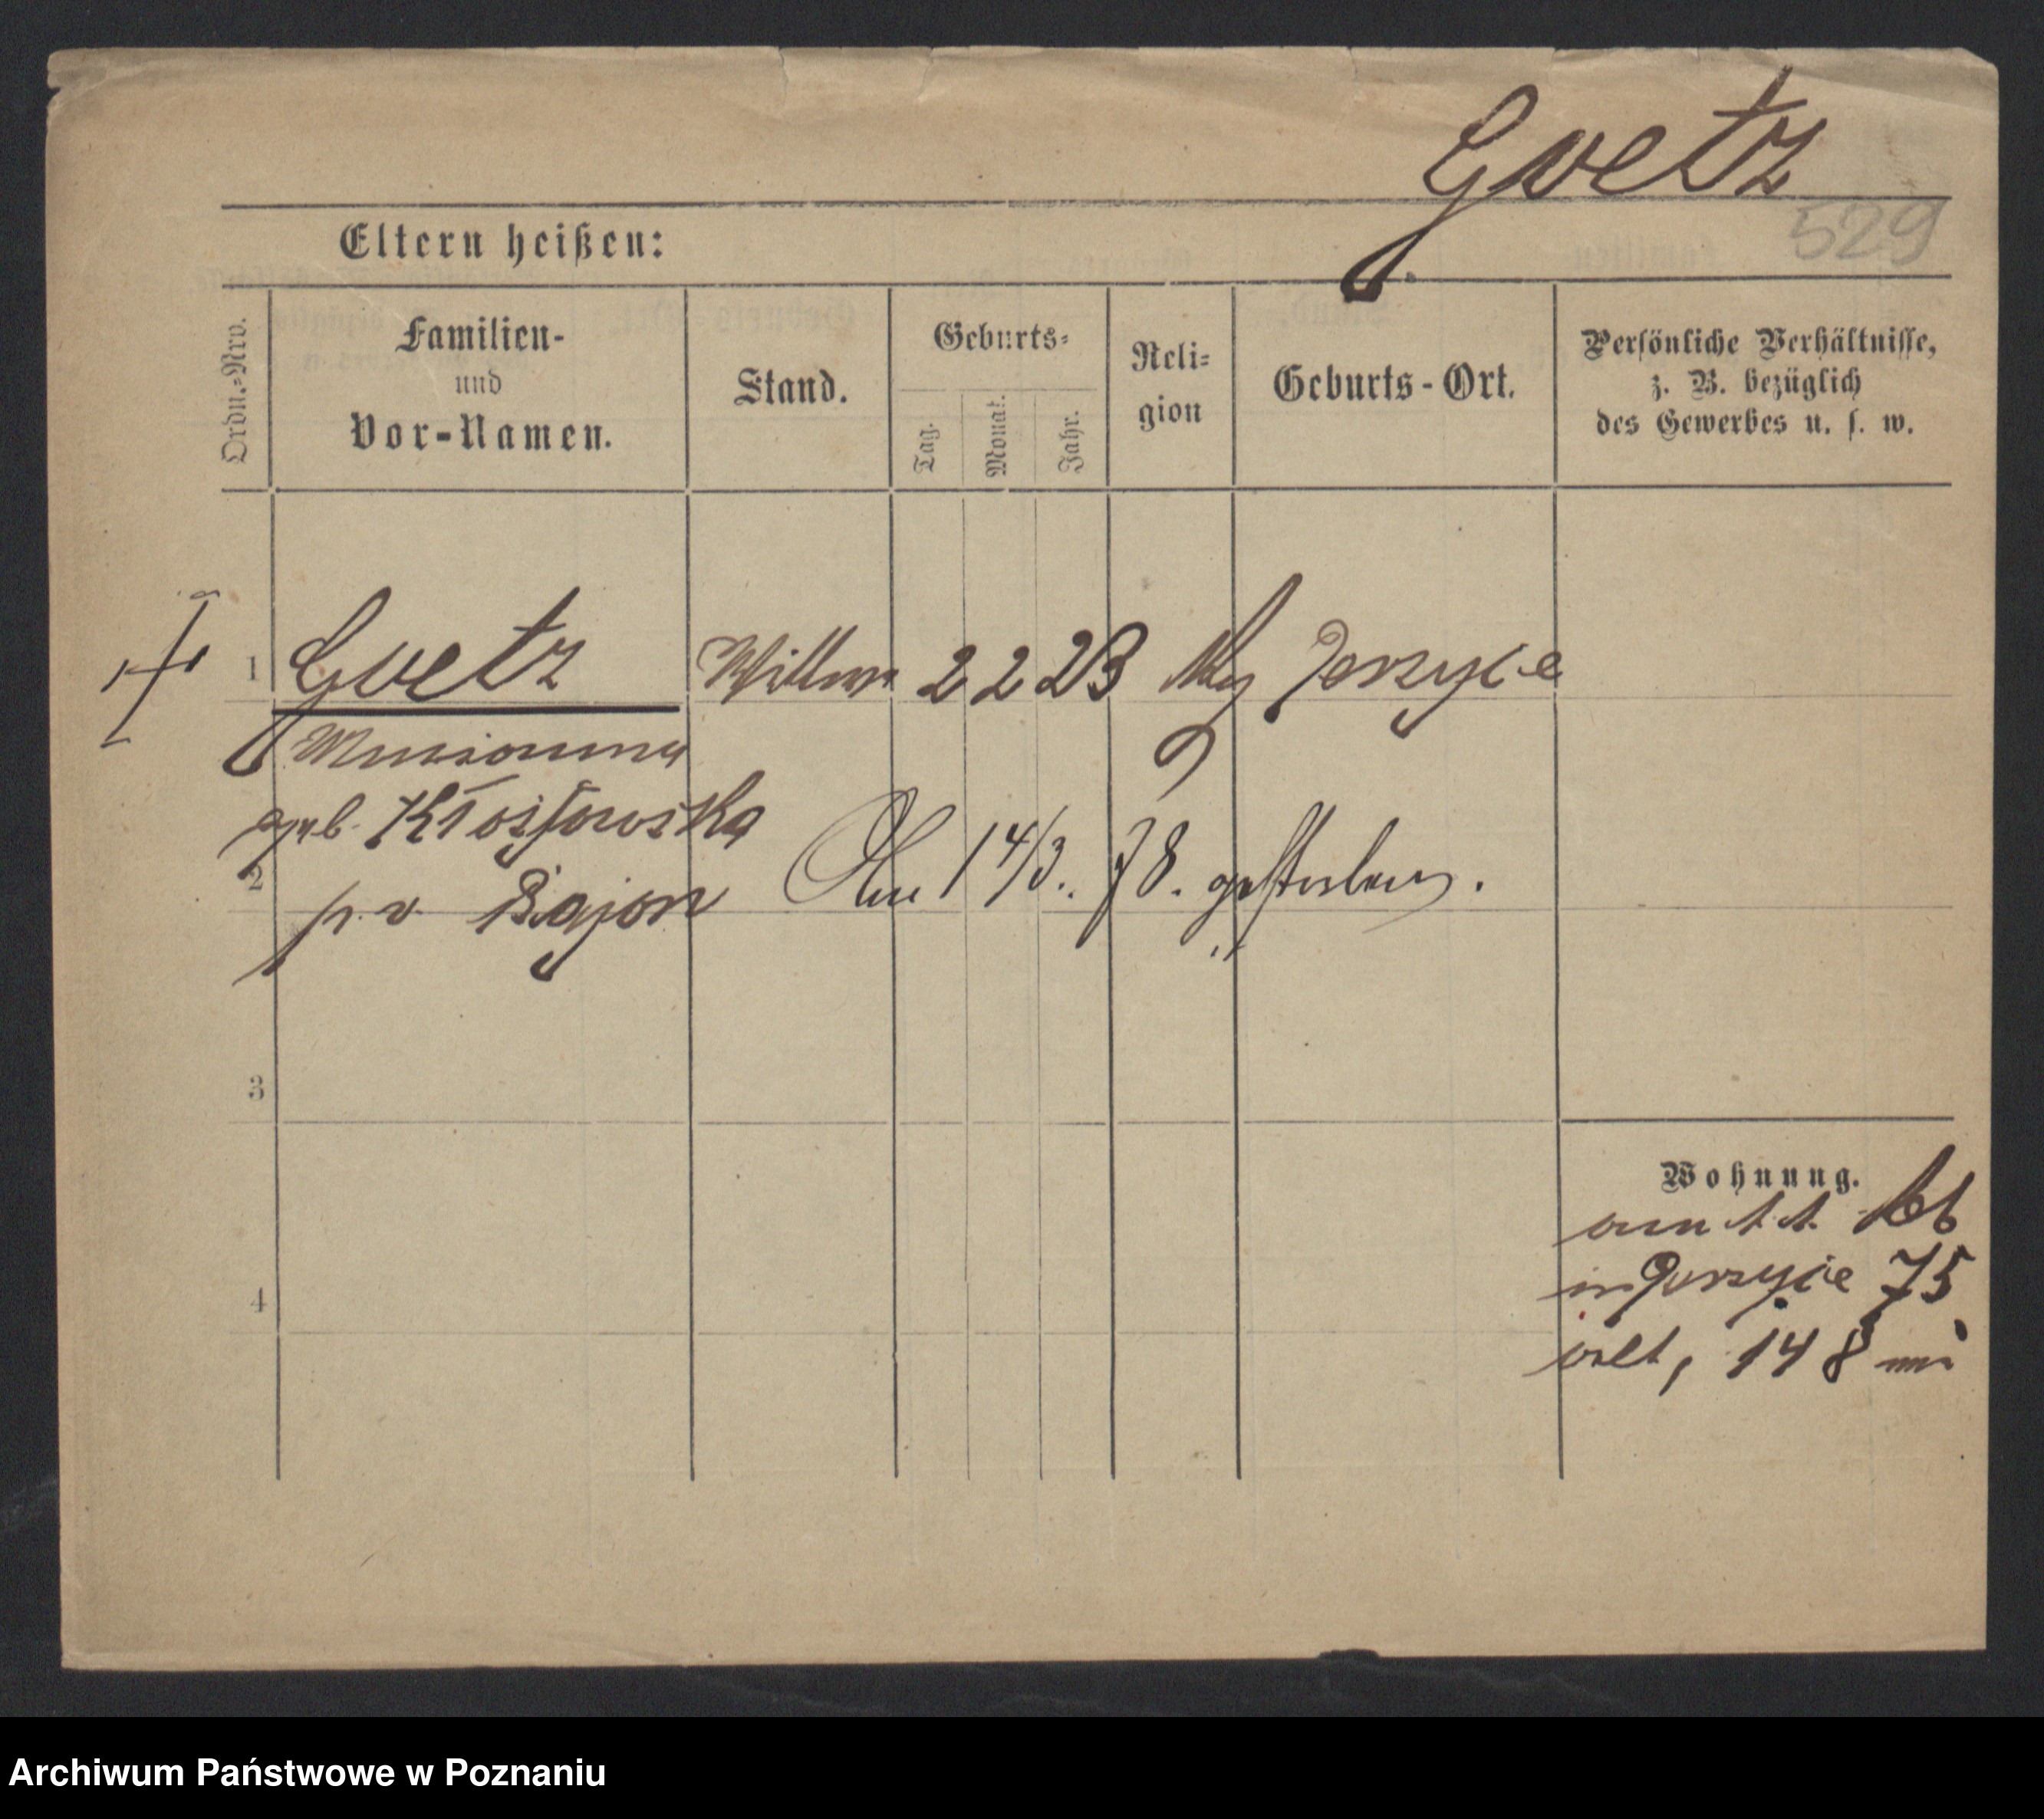 Goetz
529
Eltern heißen:
Ordn.-Nro.
Familien-
und
Vor-Namen.
Stand.
Geburts-
Tag.
Monat.
Jahr.
Reli-
gion
Geburts-Ort.
Persönliche Verhältnisse,
z. B. bezüglich
des Gewerbes u. s. w.
1 Goetz 2 2 23 Jerzyce
Marianna
geb.
2
p. v. Bajon
14/3. 78. gestorben.
3
Wohnung.
in Jerzyce 75
alt, 148
4
Archiwum Państwowe w Poznaniu